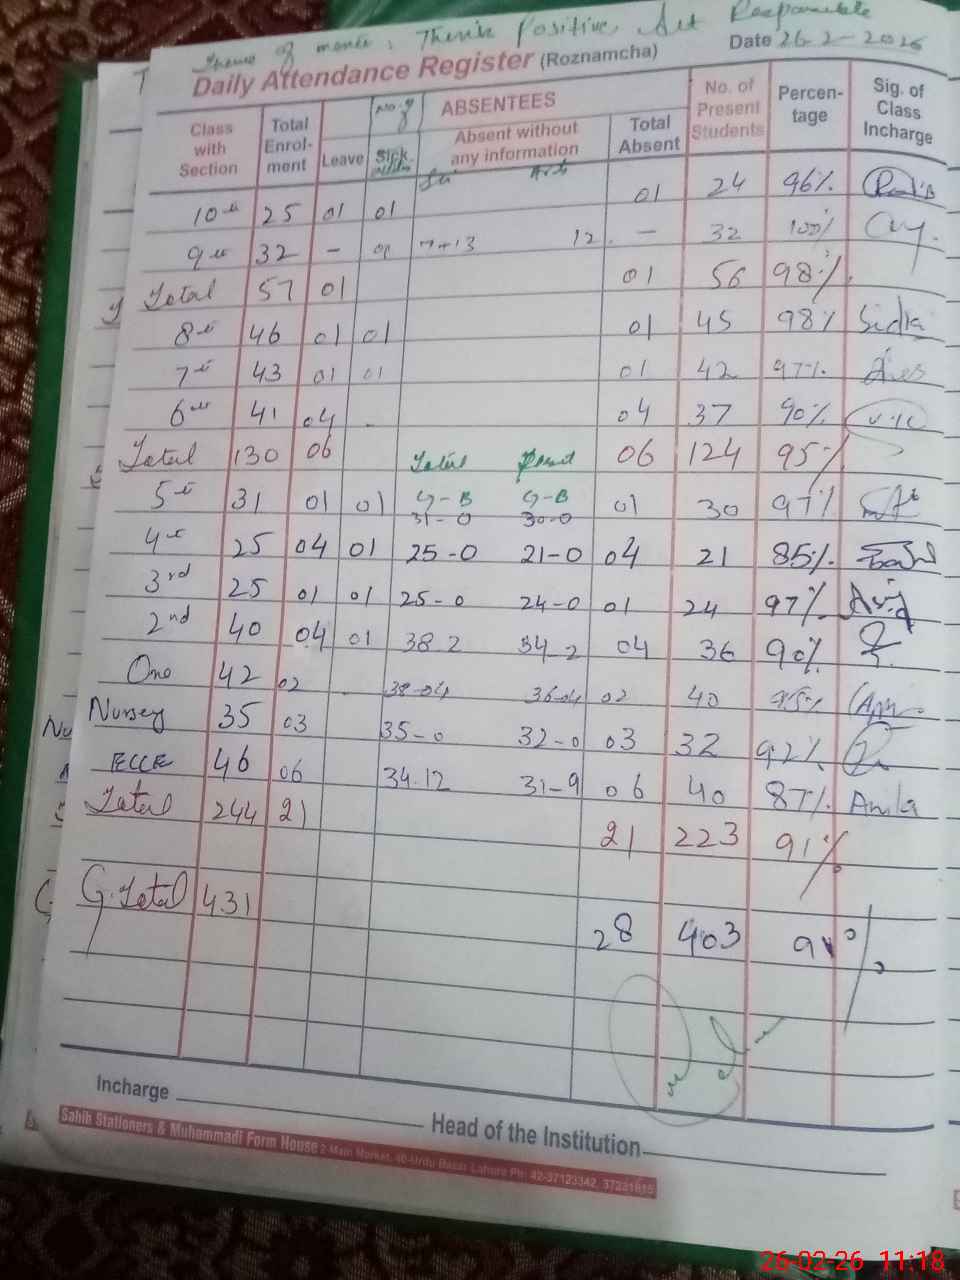 Theme of month: Think Positive, Act Responsible
Daily Attendance Register (Roznamcha) Date 26-2-2026
Class with Section | Total Enrol-ment | Leave | No. of Sick | ABSENTEES Absent without any information | Total Absent | No. of Present Students | Percen-tage | Sig. of Class Incharge
Sci Arts
10th 25 01 01 01 24 96%
9th 32 - 01 7+13 12 - 32 100%
Total 57 01 01 56 98%
8th 46 01 01 01 45 98% Sidra
7th 43 01 01 01 42 97%
6th 41 04 - 04 37 90%
Total 130 06 06 124 95%
Total Present
5th 31 01 01 G-B G-B 01 30 97%
31-0 30-0
4th 25 04 01 25-0 21-0 04 21 85%
3rd 25 01 01 25-0 24-0 01 24 97%
2nd 40 04 01 38 2 34-2 04 36 90%
One 42 02 - 38-04 36-04 02 40 95%
Nursey 35 03 35-0 32-0 03 32 92%
ECCE 46 06 34.12 31-9 06 40 87% Amla
Total 244 21 21 223 91%
G.Total 431 28 403
Incharge
Head of the Institution
Sahib Stationers & Muhammadi Form House 2-Main Market, 40-Urdu Bazar Lahore Ph: 42-37123342, 37231815
26-02-26 11:18